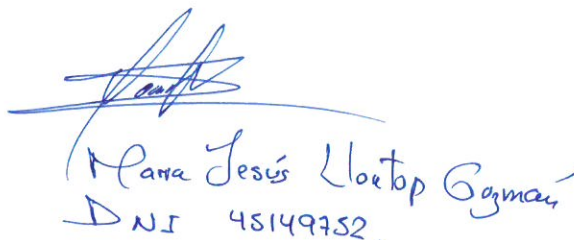 Maria Jesús Llontop Gozmán
DNI 45149752